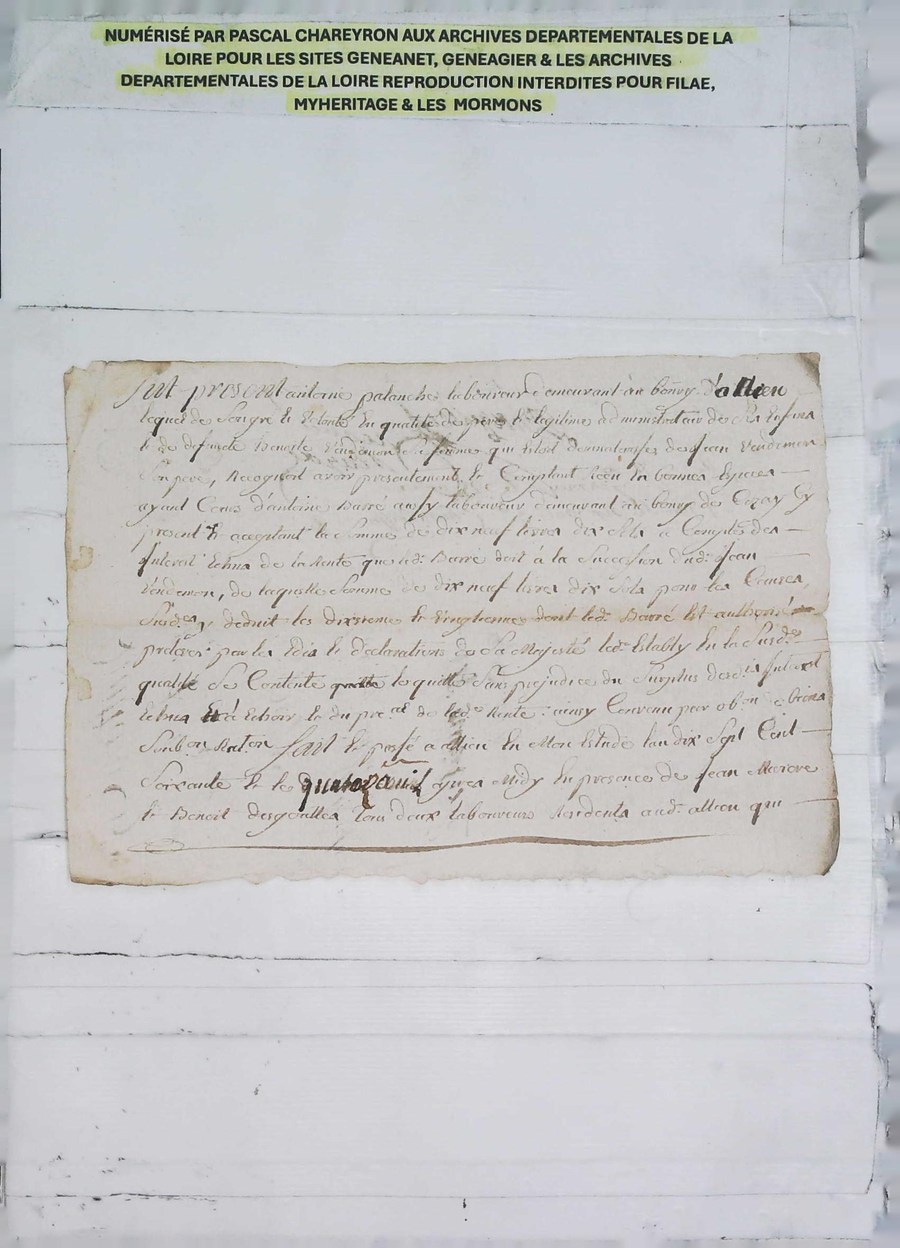 NUMÉRISÉ PAR PASCAL CHAREYRON AUX ARCHIVES DEPARTEMENTALES DE LA
LOIRE POUR LES SITES GENEANET, GENEAGIER & LES ARCHIVES
DEPARTEMENTALES DE LA LOIRE REPRODUCTION INTERDITES POUR FILAE,
MYHERITAGE & LES MORMONS
fut present antoine palanche laboureur demeurant au bourg d'allieu
lequel de son gre et volonte en qualite de pere et legitime administrateur de ses enfans
et de defuncte Benoite sa femme qui estoit donnataresse de Jean Vendemon
son pere, Recognoit avoir presentement et Comptant receu en bonnes Especes
ayant Cours d'antoine Barré aussy laboureur demeurant au bourg de Cezay Cy
present et acceptant la somme de dix neuf livres dix sols a Compte des
Interest Echus de la Rente que led. Barré doit à la succession dud. Jean
Vendemon, de laquelle somme de dix neuf livres dix sols pour les Causes
susd.es y deduit les dixiemes et Vingtiemes dont led. Barré est authorisé
par les Edis et declarations de Sa Majesté led. Establi en la susd.e
qualité se Contente le quitte sans prejudice du surplus desd.ts Interest
Echus et à Echoir et du pre.al de lad.e Rente. ainsy Convenu par obon de biens
Soub.on Ren.on fait et passé a allieu En Mon Estude lan dix Sept Cent
Soixante et le quatorze avril apres Midy En presence de Jean
et Benoit desgouttes tous deux laboureurs Residents aud. allieu qui